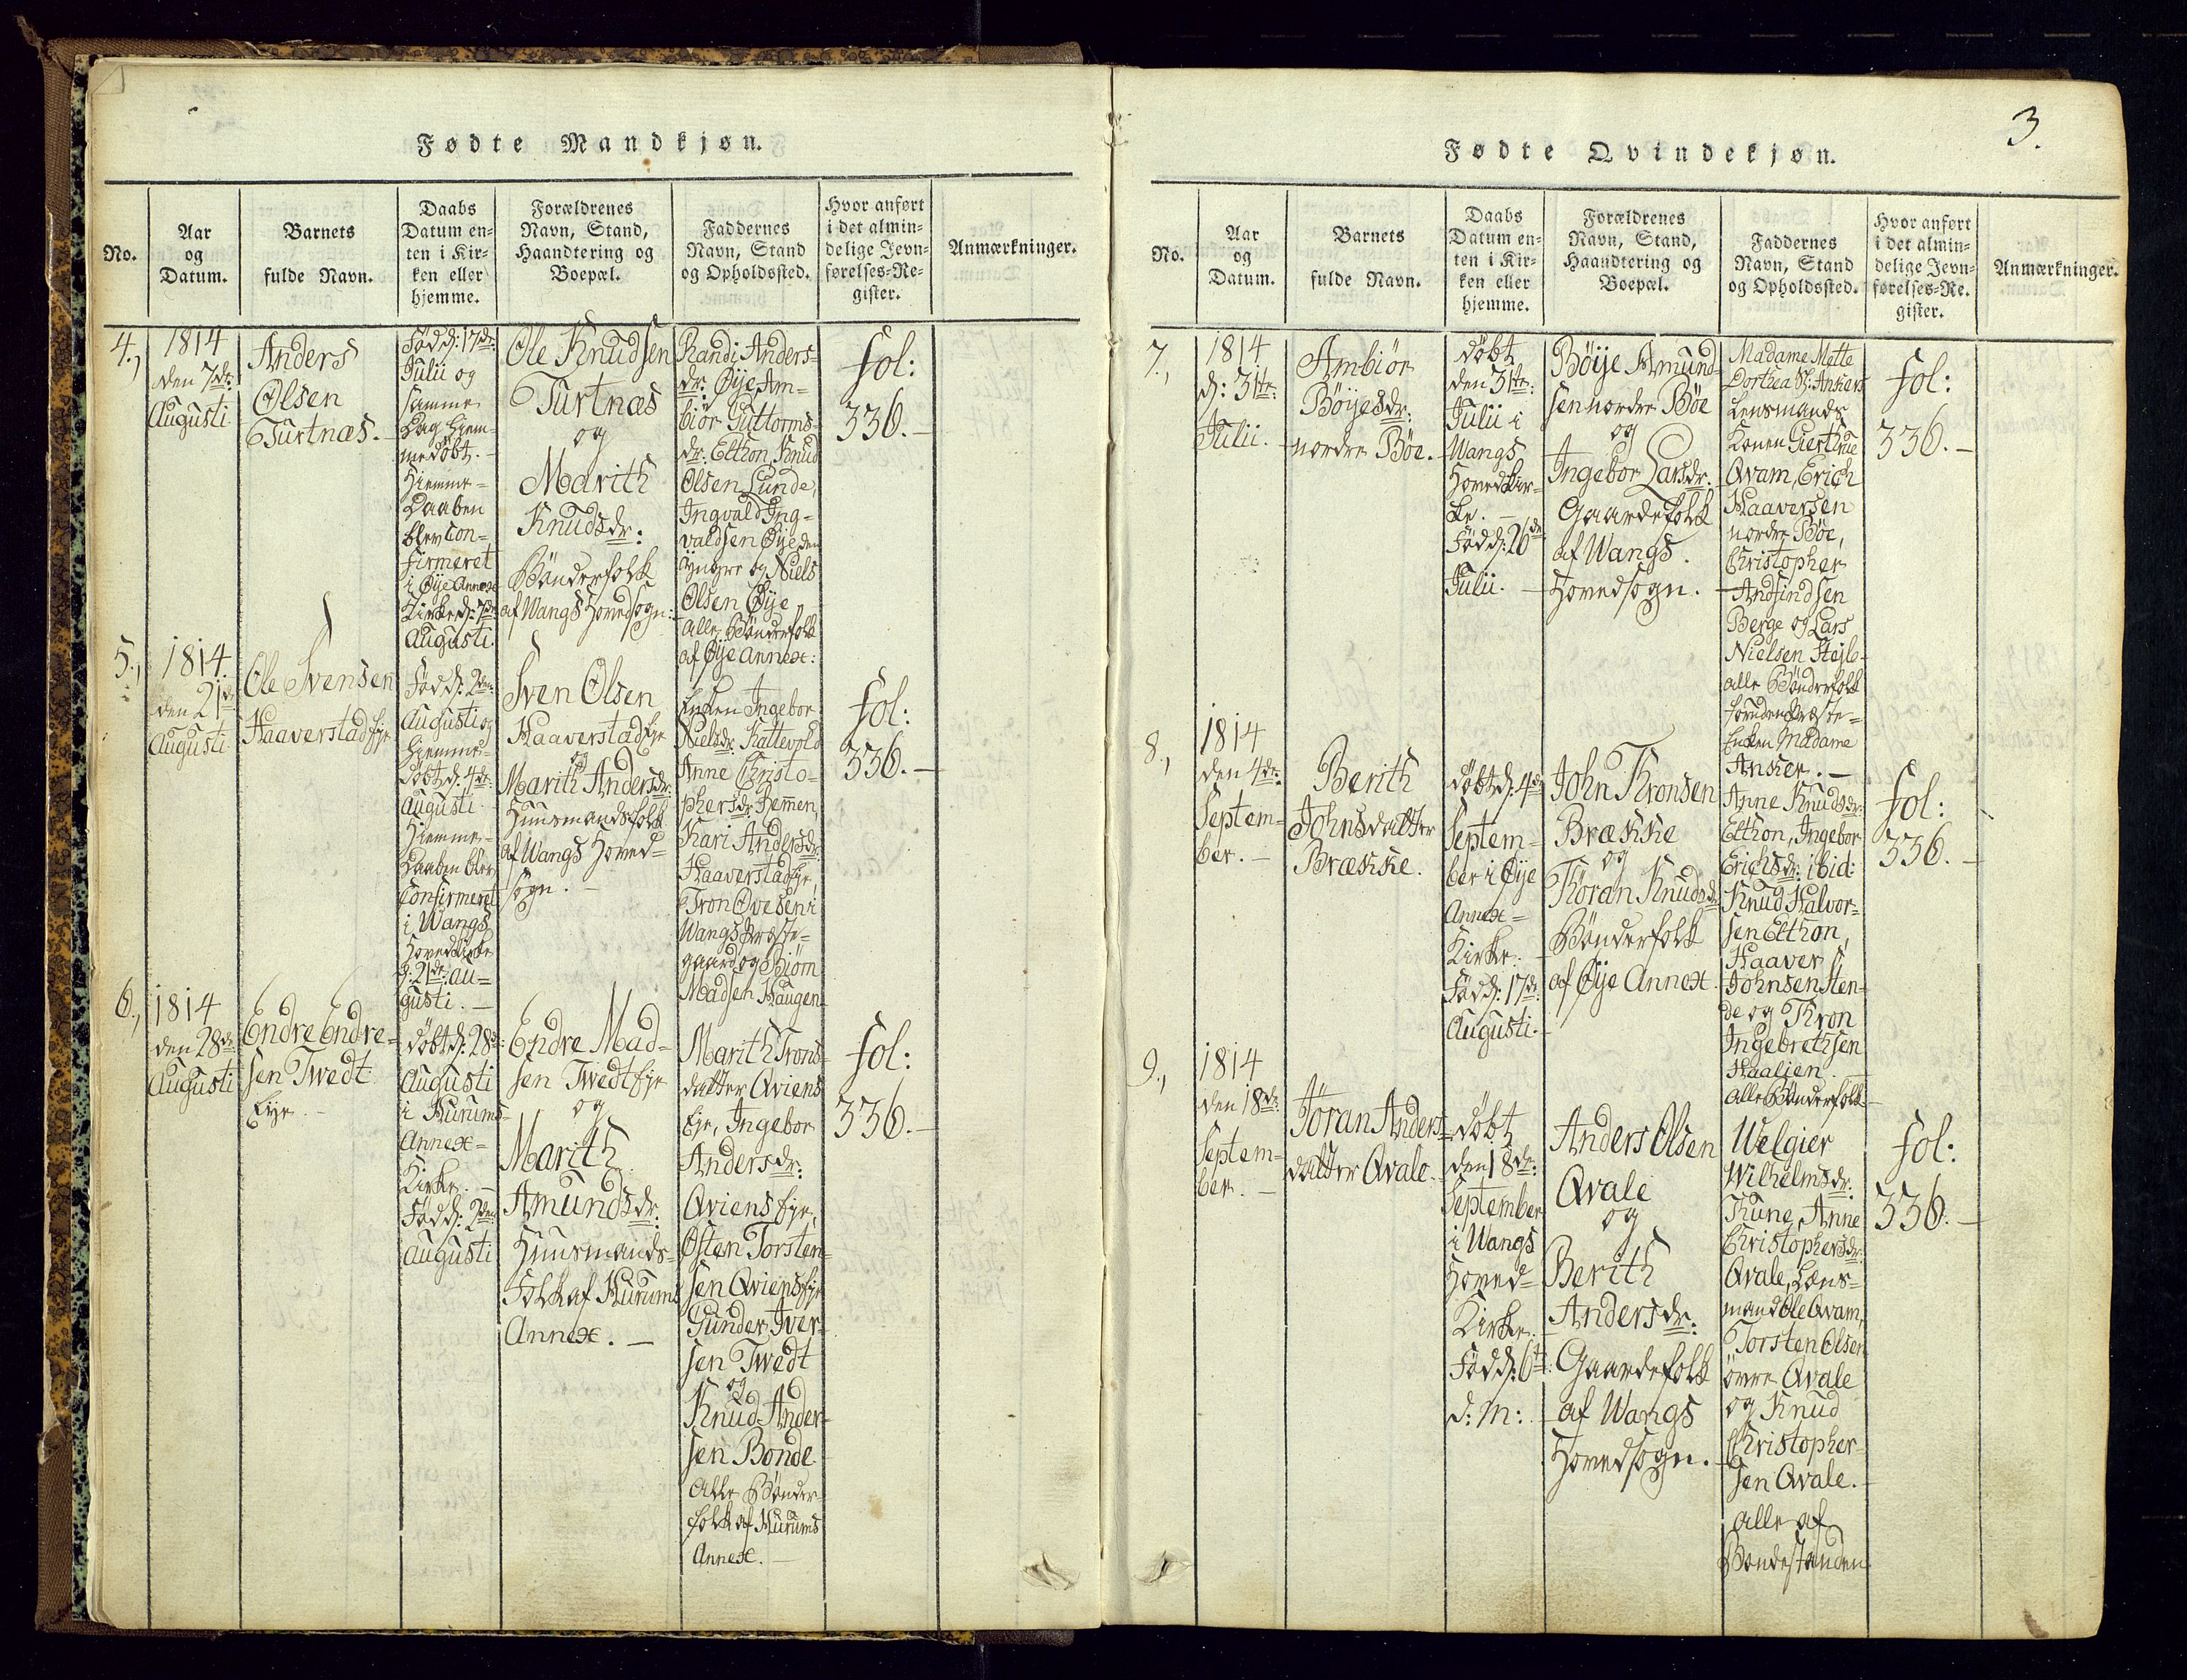 Fødte Mandkjøn.
No.
Aar
og
Datum.
Barnets
fulde Navn.
Daabs
Datum en=
ten i Kir=
ken eller
hjemme.
Forældrenes
Navn, Stand,
Haandtering og
Boepæl.
Faddernes
Navn, Stand
og Opholdssted.
Hvor anført
i det almin=
delige Jevn=
førelses=Re=
gister.
Anmærkninger.
4.,
1814
den 7de
Augusti
Anders
Olsen
Turtnæs.
Fød d: 17de
Julii og
samme
Dag hiem=
medøbt.
Hiemme=
Daaben
blev Con=
firmeret
i Øye Annex
Kirke d: 7de
Augusti.
Ole Knudsen
Turtnæs
og
Marith
Knudsdr:
Bønderfolk
af Wangs Hovedsogn:
Randi Anders=
dr: Øye, Am=
biør Guttorms=
dr: Elthon, Knud
Olsen Lunde,
Ingvald Ing=
valdsen Øye den
yngre og Niels
Olsen Øye,
alle Bønderfolk
af Øye Annex:
fol:
336.
5.,
1814.
den 21de
Augusti
Ole Svensen
Haaverstad Eje
Fød d: 2den
Augusti og
hiemme=
døbt d: 4de
Augusti.
Hiemme=
Daaben blev
Confirmeret
i Wangs
Hovedkirke
d: 21de Au=
gusti.
Sven Olsen
Haaverstad Eje
og
Marith Andersdr:
Huusmandsfolk
af Wangs Hoved=
sogn.
Enken Ingebor
Nielsdr: Kattevold
Anne Christo=
phersdr: Hemen,
Kari Andersdr:
Haaverstad Eje,
Tron Ovesen i
Wangs Præste=
gaard og Biørn
Madsen Haugen
fol:
336.
6.,
1814
den 28de
Augusti
Endre Endre=
sen Twedt
Eje.
døbt d: 28de
Augusti
i Hurums
Annex=
Kirke.
Fød d: 2den
Augusti
Endre Mad=
sen Twedt Eje
og
Marith
Amundsdr:
Huusmands=
Folk af Hurums
Annex.
Marith Trons=
datter Qviens
Eje, Ingebor
Andersdr:
Qviens Eje,
Østen Torsten=
sen Qviens Eje
Gunder Iver=
sen Twedt
og
Knud Ander=
sen Bonde
Alle Bønder=
folk af Hurums
Annex.
fol:
336.
3.
Fødte Qvindekjøn.
No.
Aar
og
Datum.
Barnets
fulde Navn.
Daabs
Datum en=
ten i Kir=
ken eller
hjemme.
Forældrenes
Navn, Stand,
Haandtering og
Boepæl.
Faddernes
Navn, Stand
og Opholdssted.
Hvor anført
i det almin=
delige Jevn=
førelses=Re=
gister.
Anmærkninger.
7.,
1814
d: 31te
Julii.
Ambiør
Böyesdr:
nordre Böe.
døbt
den 31te
Julii i
Wangs
Hovedkir=
ke.
Fød d: 26de
Julii.
Böije Amund=
sen nordre Böe
og
Ingebor Larsdr:
Gaardefolk
af Wangs
Hovedsogn.
Madame Mette
Dorthea Sl: Ankers
Lensmands
Konen Gierthrue
Qvam, Erich
Haaversen
nordre Böe,
Christopher
Andfindsen
Berge og Lars
Nielsen Stejle
alle Bønderfolk
foruden Præste=
Enken Madame
Anker.
fol:
336.
8.,
1814
den 4de
Septem=
ber.
Berith
Johnsdatter
Brække.
døbt d: 4de
Septem=
ber i Øye
Annex=
Kirke.
Fød d: 17de
Augusti.
John Thronsen
Brække
og
Töran Knudsdr
Bønderfolk
af Øye Annex.
Anne Knudsdr:
Elthon, Ingebor
Erichsdr: ibid:
Knud Halvor=
sen Elthon,
Haaver
Johnsen Sten=
de og Thron
Ingebrethsen
Haalien.
Alle Bønderfolk
fol:
336.
9.,
1814
den 18de
Septem=
ber.
Töran Anders=
datter Qvale.
døbt
den 18de
September
i Wangs
Hoved=
Kirke.
Fød d: 6te
d: M:
Anders Olsen
Qvale
og
Berith
Andersdr:
Gaardefolk
af Wangs
Hovedsogn.
Welgier
Wilhelmsdr:
Kune, Anne
Christophersdr:
Qvale, Lens=
mand Ole Qvam,
Torsten Olsen
övre Qvale
og Knud
Christopher=
sen Qvale.
Alle af
Bondestanden
fol:
336.